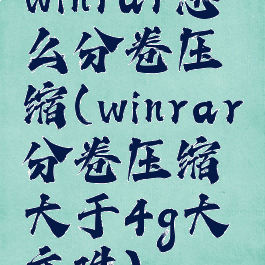 winrar怎
么分卷压
缩(winrar
分卷压缩
大于4g大